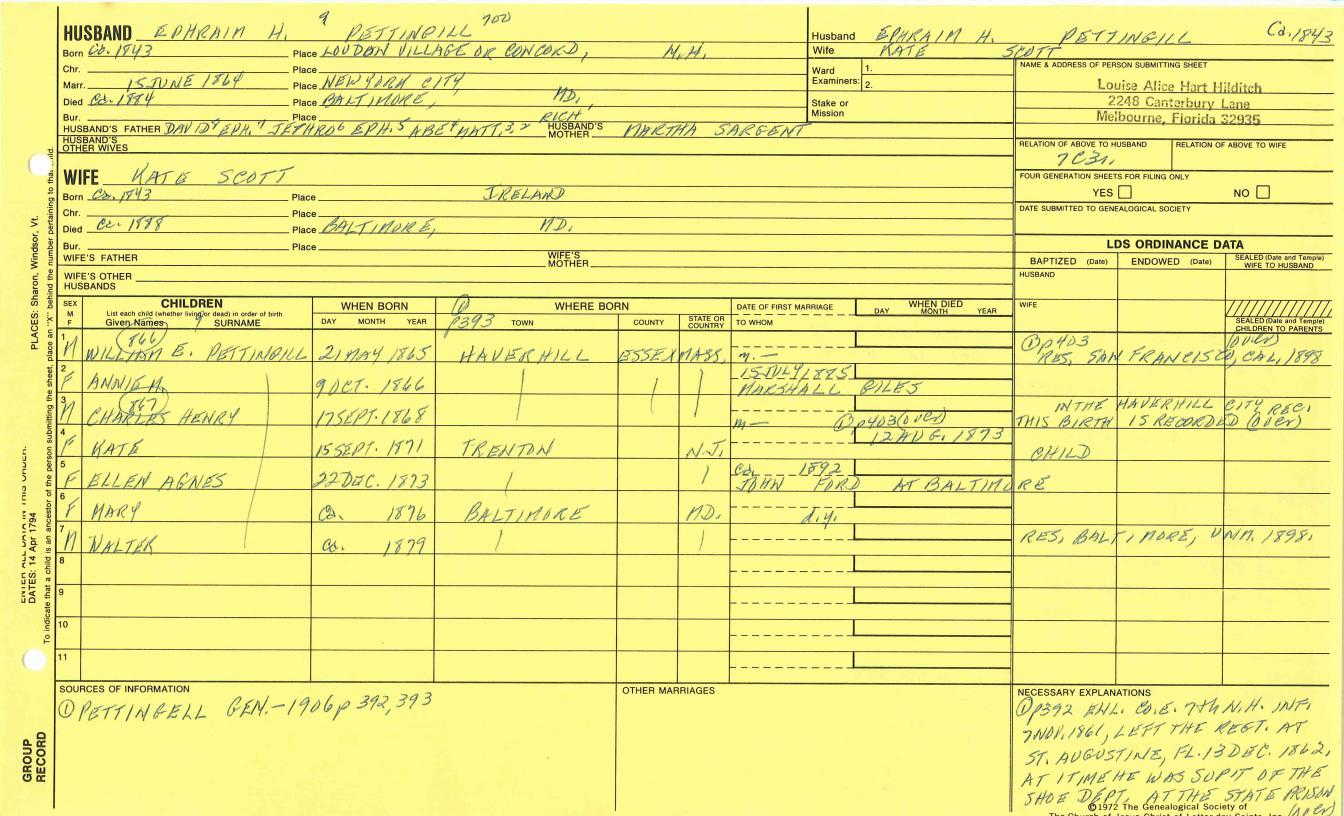 9 700
HUSBAND EPHRAIM H. PETTINGILL
Born Ca. 1843 Place LOUDON VILLAGE OR CONCORD, N.H.
Chr. Place
Marr. 15 JUNE 1864 Place NEW YORK CITY
Died Ca. 1884 Place BALTIMORE, MD.
Bur. Place RICH
HUSBAND'S FATHER DAVID EPH. JETHRO 6 EPH. 5 ABE 4 MATT. 3, 2 HUSBAND'S MOTHER MARTHA SARGENT
HUSBAND'S OTHER WIVES
WIFE KATE SCOTT
Born Ca. 1843 Place IRELAND
Chr. Place
Died Ca. 1888 Place BALTIMORE, MD.
Bur. Place
WIFE'S FATHER WIFE'S MOTHER
WIFE'S OTHER HUSBANDS
Husband EPHRAIM H. PETTINGILL Ca. 1843
Wife KATE SCOTT
Ward Examiners: 1.
2.
Stake or Mission
NAME & ADDRESS OF PERSON SUBMITTING SHEET
Louise Alice Hart Hilditch
2248 Canterbury Lane
Melbourne, Florida 32935
RELATION OF ABOVE TO HUSBAND RELATION OF ABOVE TO WIFE
7C3r.
FOUR GENERATION SHEETS FOR FILING ONLY
YES NO
DATE SUBMITTED TO GENEALOGICAL SOCIETY
LDS ORDINANCE DATA
BAPTIZED (Date) ENDOWED (Date) SEALED (Date and Temple) WIFE TO HUSBAND
HUSBAND
WIFE
SEALED (Date and Temple) CHILDREN TO PARENTS
SEX M F CHILDREN WHEN BORN WHERE BORN DATE OF FIRST MARRIAGE WHEN DIED
List each child (whether living or dead) in order of birth
Given Names 9 SURNAME DAY MONTH YEAR ① p393 TOWN COUNTY STATE OR COUNTRY TO WHOM DAY MONTH YEAR
1 M (866) WILLIAM E. PETTINGILL 21 MAY 1865 HAVERHILL ESSEX MASS. m.— ① p403 (over)
RES. SAN FRANCISCO, CAL, 1898
2 F ANNIE M. 9 OCT. 1866 15 JULY 1885
MARSHALL GILES
3 M (867) CHARLES HENRY 17 SEPT. 1868 m— ① p403 (over) IN THE HAVERHILL CITY REC.
THIS BIRTH IS RECORDED (over)
4 F KATE 15 SEPT. 1871 TRENTON N.J. 12 AUG. 1873 CHILD
5 F ELLEN AGNES 22 DEC. 1873 Ca. 1892
JOHN FORD AT BALTIMORE
6 F MARY Ca. 1876 BALTIMORE MD. d.y.
7 M WALTER Ca. 1879 RES. BALTIMORE, UNM. 1898.
8
9
10
11
SOURCES OF INFORMATION
① PETTINGELL GEN.-1906 p 392, 393
OTHER MARRIAGES
NECESSARY EXPLANATIONS
① p392 ENL. CO. E. 7th N.H. INF.
7 NOV. 1861, LEFT THE REGT. AT
ST. AUGUSTINE, FL. 13 DEC. 1862,
AT 1 TIME HE WAS SUPT OF THE
SHOE DEPT. AT THE STATE PRISON
(over)
©1972 The Genealogical Society of
The Church of Jesus Christ of Latter-day Saints, Inc.
PLACES: Sharon, Windsor, Vt.
To indicate that a child is an ancestor of the person submitting the sheet, place an "X" behind the number pertaining to that child.
ENTER ALL DATA IN THIS ORDER:
DATES: 14 Apr 1794
GROUP RECORD